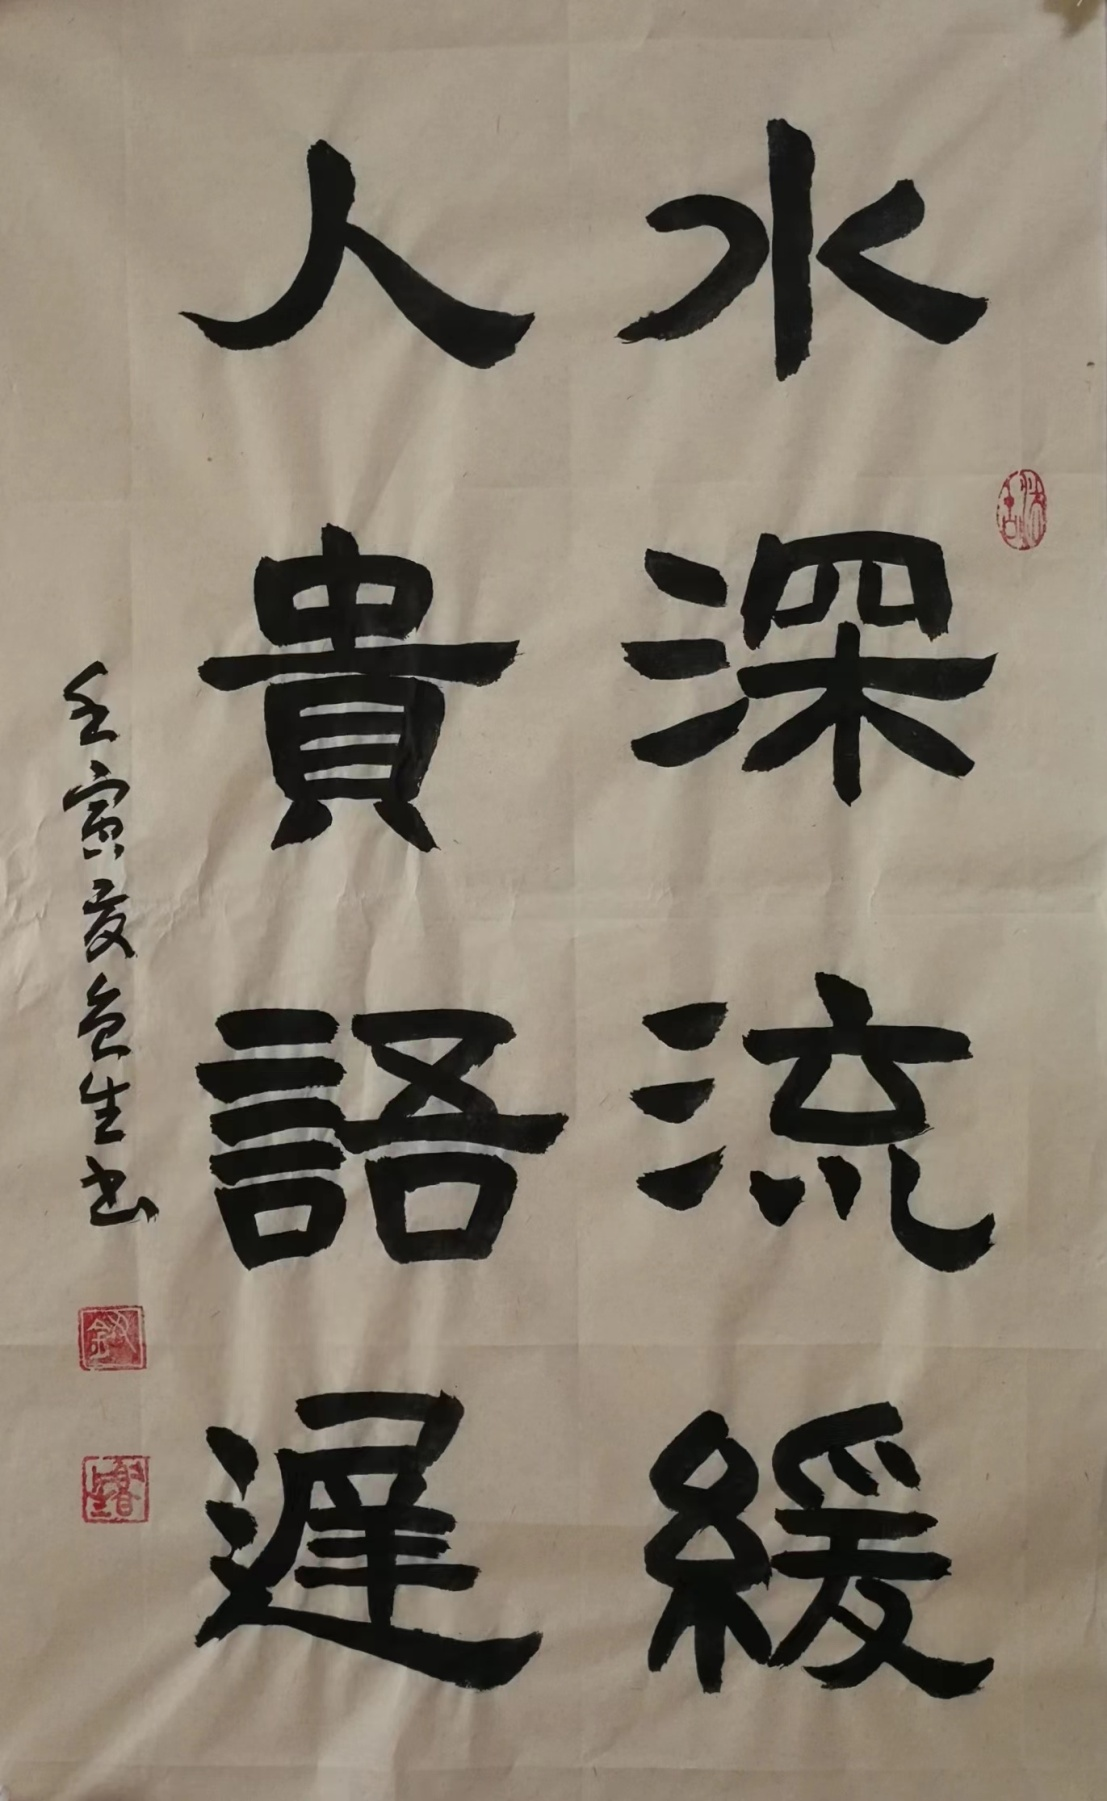 水深流緩
人貴語遲
壬寅夏魯生书